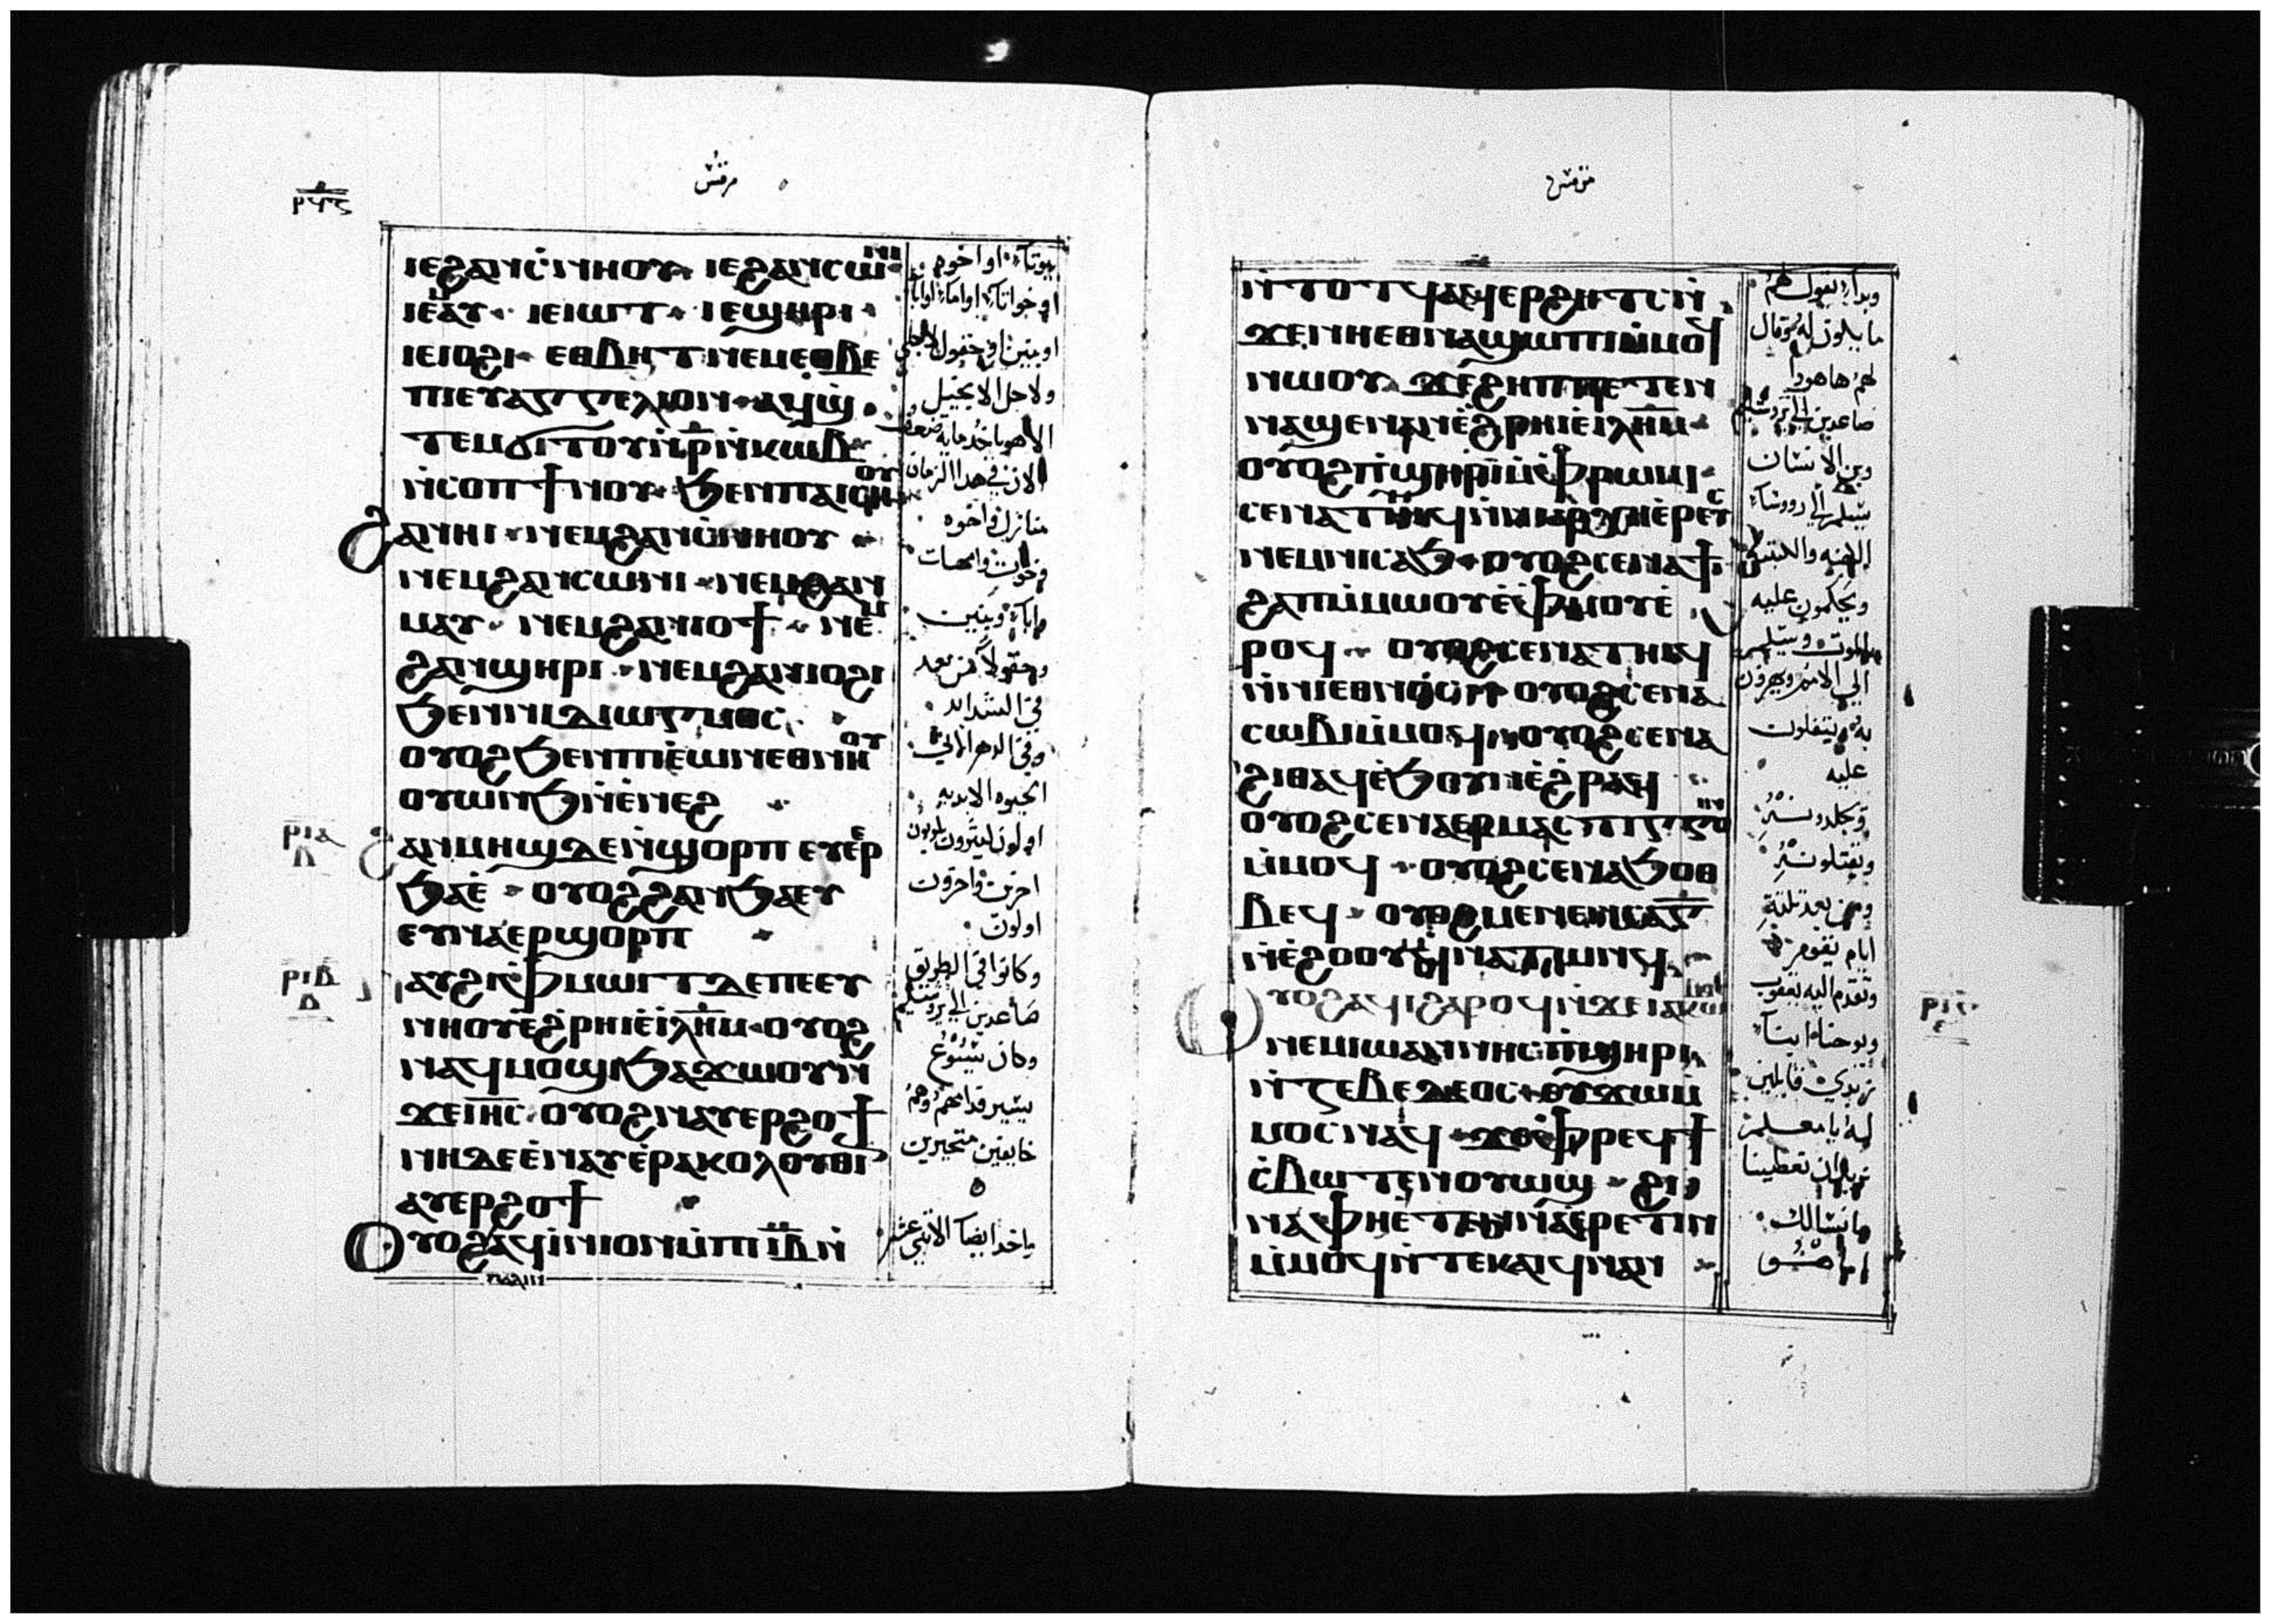 مرقس
ⲓⲉϩⲁⲛⲥ̀ⲛⲏⲟⲩ ⲓⲉϩⲁⲛⲥⲱⲛⲓ
ⲓⲉⲙⲁⲩ ⲓⲉⲓⲱⲧ ⲓⲉϣⲏⲣⲓ
ⲓⲉⲓⲟϩⲓ ⲉⲑⲃⲏⲧ ⲛⲉⲙⲉⲑⲃⲉ
ⲡⲓⲉⲩⲁⲅⲅⲉⲗⲓⲟⲛ ⲁϥϣ
ⲧⲉⲙϭⲓⲧⲟⲩⲛ̀ⲣ̅ⲛ̀ⲕⲱⲃ
ⲛ̀ⲥⲟⲡ ϯⲛⲟⲩ ϧⲉⲛⲡⲁⲓⲥⲏⲟⲩ
ϩⲁⲛⲏⲓ ⲛⲉⲙϩⲁⲛⲥ̀ⲛⲏⲟⲩ
ⲛⲉⲙϩⲁⲛⲥⲱⲛⲓ ⲛⲉⲙϩⲁⲛ
ⲙⲁⲩ ⲛⲉⲙϩⲁⲛⲓⲟϯ ⲛⲉⲙ
ϩⲁⲛϣⲏⲣⲓ ⲛⲉⲙϩⲁⲛⲓⲟϩⲓ
ϧⲉⲛⲛⲓⲇⲓⲱⲅⲙⲟⲥ
ⲟⲩⲟϩϧⲉⲛⲡⲓⲉ̀ⲱⲛⲉⲑⲛⲏⲟⲩ
ⲟⲩⲱⲛϧⲛ̀ⲉ̀ⲛⲉϩ
ϩⲁⲛⲙⲏϣⲇⲉⲛ̀ϣⲟⲣⲡ ⲉⲩⲉ̀ⲉⲣ
ϧⲁⲉ̀ ⲟⲩⲟϩϩⲁⲛϧⲁⲉⲩ
ⲉⲩⲛⲁⲉⲣϣⲟⲣⲡ
ⲁⲩϩⲓⲫ̀ⲙⲱⲓⲧⲇⲉⲡⲉⲉⲩ
ⲛⲏⲟⲩⲉ̀ϩ̀ⲣⲏⲓⲉ̀ⲓⲗ̅ⲏ̅ⲙ ⲟⲩⲟϩ
ⲛⲁϥⲙⲟϣⲓϧⲁϫⲱⲟⲩⲛ̀
ϫⲉⲓⲏ̅ⲥ ⲟⲩⲟϩⲛⲁⲩⲉⲣϩⲟϯ
ⲛⲏⲇⲉⲉ̀ⲛⲁⲩⲉ̀ⲣⲁⲕⲟⲗⲟⲩⲑⲓ
ⲁⲩⲉⲣϩⲟϯ
ⲟⲩⲟϩⲁϥⲓ̀ⲛⲓⲟⲛⲙ̀ⲡⲓⲓ̅ⲃ̅ⲛ̀
ⲡⲁⲗⲓⲛ
ⲣⲓⲁ
ⲣⲓⲃ
بيوتاً او اخوه
او بنين او حقول لاجلي
ولاجل الانجيل
الان في هدا الزمان
منازل واخوه
واباً وبنين
في الشدايد
وفي الدهر الاتي
الحيوه الابديه
اولون
وكانوا في الطريق
صاعدين الي يروشليم
وكان يسوع
يسير قدامهم وهم
خايفين متحيرين
واخد ايضاً الاثني عشر
مرقس
ⲛ̀ⲧⲟⲧϥⲁϥⲉⲣϩⲏⲧⲥⲛ̀
ϫⲉⲛⲏⲉⲑⲛⲁϣⲱⲡⲓⲙ̀ⲙⲟϥ
ⲛⲱⲟⲩ ϫⲉϩⲏⲡⲡⲉⲧⲉⲛ
ⲛⲁϣⲉⲛⲁⲛⲉ̀ϩ̀ⲣⲏⲓⲉ̀ⲓⲗ̅ⲏ̅ⲙ
ⲟⲩⲟϩⲡ̀ϣⲏⲣⲓⲙ̀ⲫ̀ⲣⲱⲙⲓ
ⲥⲉⲛⲁⲧⲏⲓϥⲛ̀ⲛⲓⲁⲣⲭⲏⲉ̀ⲣⲉⲩⲥ
ⲛⲉⲙⲛⲓⲥⲁϧ ⲟⲩⲟϩⲥⲉⲛⲁϯ
ϩⲁⲡⲙ̀ⲙⲱⲟⲩⲉ̀ⲫ̀ⲙⲟⲩⲉ̀
ⲣⲟϥ ⲟⲩⲟϩⲥⲉⲛⲁⲧⲏⲓϥ
ⲛ̀ⲛⲓⲉⲑⲛⲟⲥ ⲟⲩⲟϩⲥⲉⲛⲁ
ⲥⲱⲃⲓⲙ̀ⲙⲟϥ ⲟⲩⲟϩⲥⲉⲛⲁ
ϩⲓⲑⲁϥⲉ̀ϧⲟⲩⲛⲉ̀ϩ̀ⲣⲁϥ
ⲟⲩⲟϩⲥⲉⲛⲁⲉⲣⲙⲁⲥⲧⲓⲅⲅⲟⲓⲛ
ⲙ̀ⲙⲟϥ ⲟⲩⲟϩⲥⲉⲛⲁϧⲟⲑ
ⲃⲉϥ ⲟⲩⲟϩⲙⲉⲛⲉⲛⲥⲁⲅ̅
ⲛ̀ⲉ̀ϩⲟⲟⲩϥⲛⲁⲧⲱⲛϥ
ⲟⲩⲟϩⲁϥⲓϩⲁⲣⲟϥⲛ̀ϫⲉⲓⲁⲕⲱⲃⲟⲥ
ⲛⲉⲙⲓⲱⲁⲛⲛⲏⲥ ⲛⲓϣⲏⲣⲓ
ⲛ̀ⲍⲉⲃⲉⲇⲉⲟⲥ ⲉⲩϫⲱⲙ̀
ⲙⲟⲥⲛⲁϥ ϫⲉⲫ̀ⲣⲉϥϯ
ⲥ̀ⲃⲱⲧⲉⲛⲟⲩⲱϣ ϩⲓ
ⲛⲁⲫⲏⲉ̀ⲧⲉⲛⲛⲁⲉ̀ⲣⲉⲧⲓⲛ
ⲙ̀ⲙⲟϥⲛ̀ⲧⲉⲕⲁⲓϥⲛⲁⲛ
ⲣⲓⲅ
وبدا يقول لهم
ما يكون له وقال
لهم هاهودا
صاعدين الي يروشليم
وبن الانسان
يسلم الي رووسا
الكهنه والكتبه
ويحكمون عليه
بالموت ويسلم
الي الامم ويهزون
به ويتفلون
عليه
ويجلدونه
ويقتلونه
ومن بعد ثلثة
ايام يقوم
وتقدم اليه يعقوب
ويوحنا ابنا
زبدي قايلين
له يا معلم
نريد ان تعطينا
ما نسالك